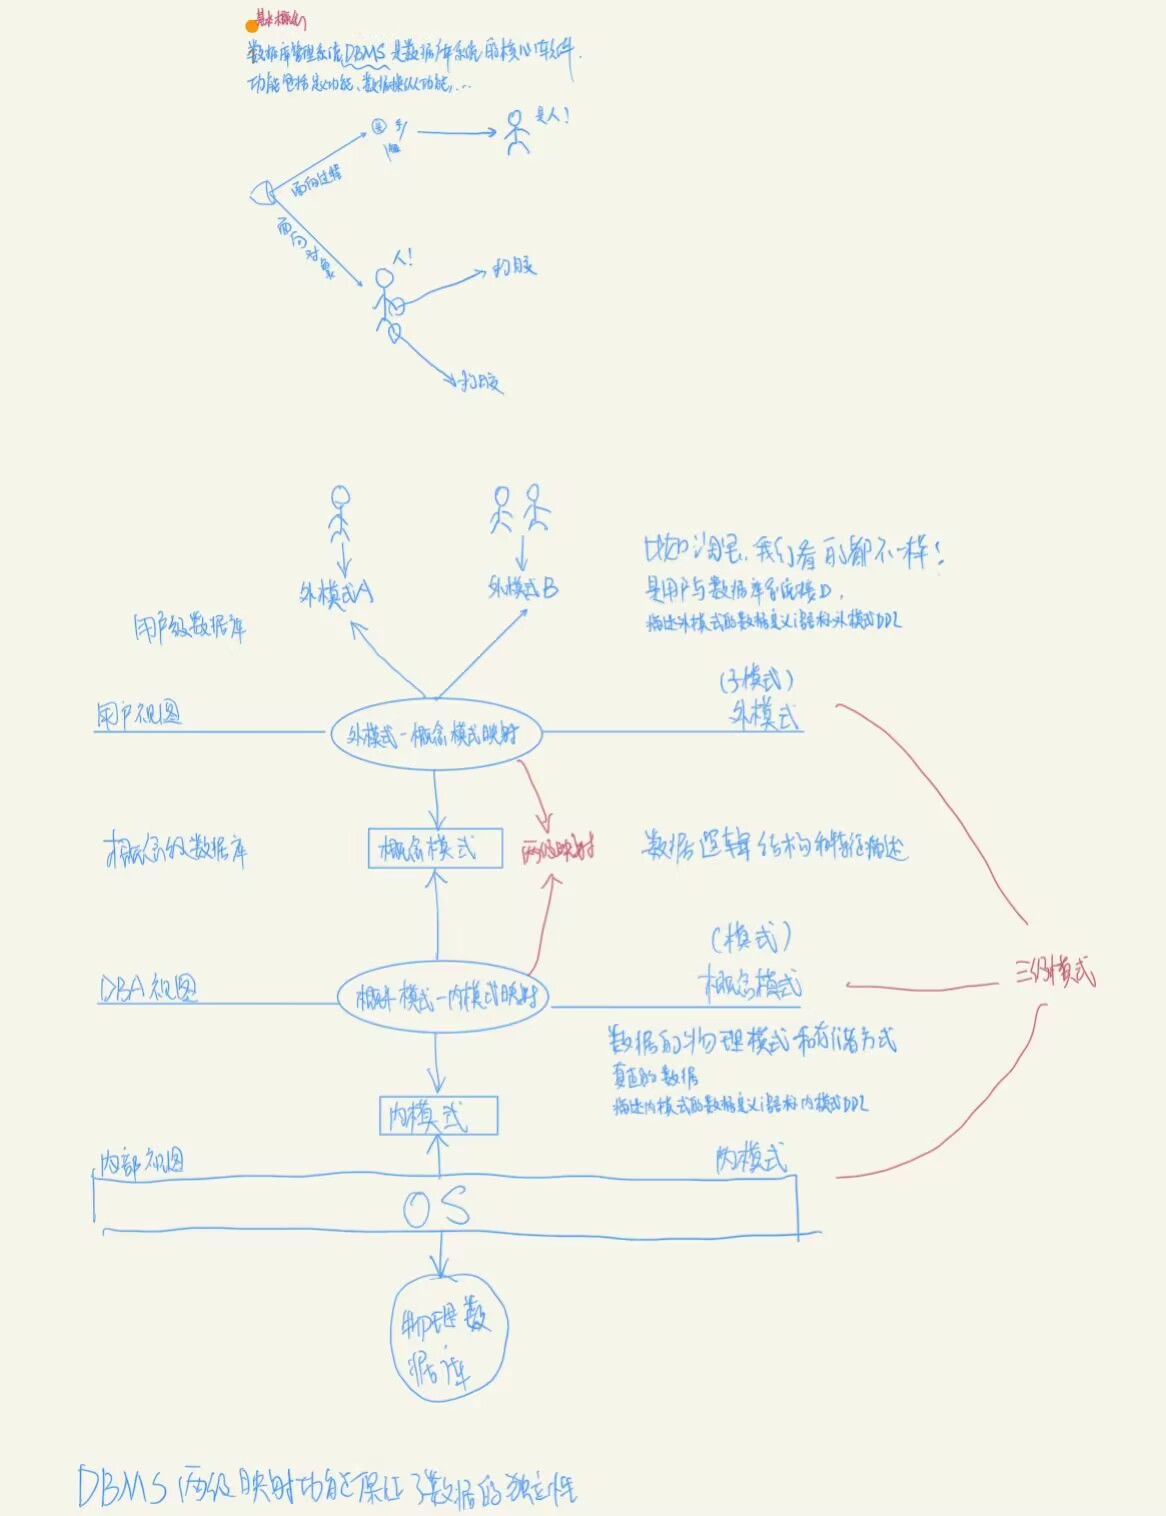 基本概念
数据库管理系统DBMS是数据库系统的核心软件.
功能包括定义功能、数据操纵功能,...
是人!
面向过程
面向对象
人!
外模式A
外模式B
比如淘宝,我们看的都不一样!
是用户与数据库系统接口,
描述外模式的数据定义语言称外模式DDL
用户级数据库
(子模式)
用户视图
外模式-概念模式映射
外模式
概念级数据库
概念模式
两级映射
数据逻辑结构和特征描述
(模式)
DBA视图
概念模式-内模式映射
概念模式
三级模式
数据的物理模式和存储方式
真正的数据
描述内模式的数据定义语言称内模式DDL
内模式
内部视图
内模式
OS
物理数
据库
DBMS两级映射功能保证了数据的独立性